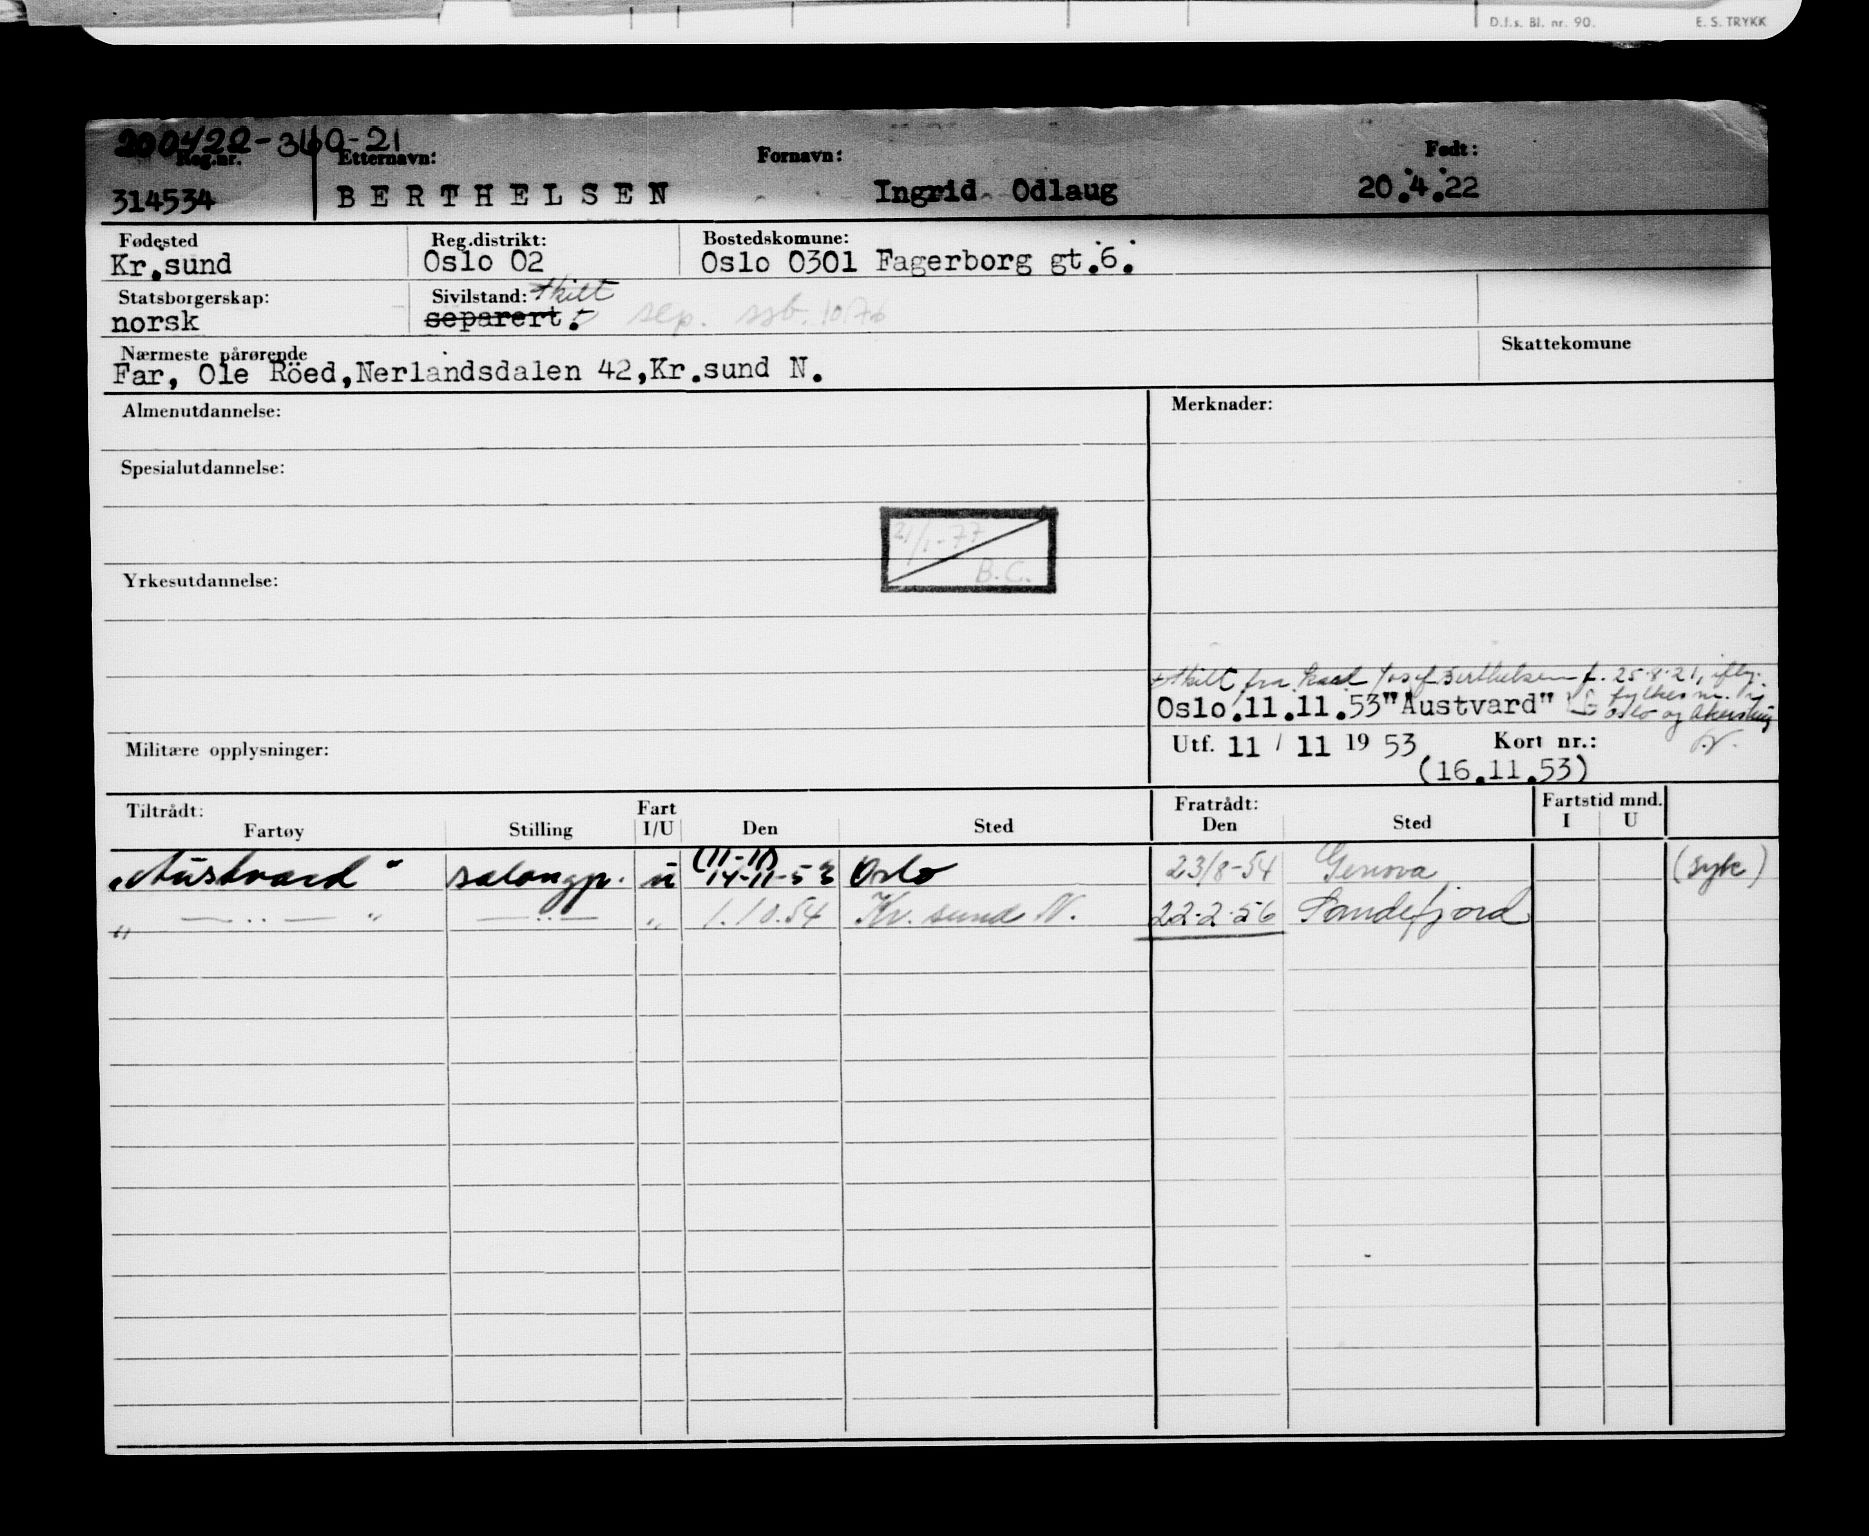 D.f.s. Bl. nr. 90. E. S. TRYKK
200422-360-21
Reg.nr. Etternavn: Fornavn: Født:
314534 BERTHELSEN Ingrid Odlaug 20.4.22
Fødested Reg.distrikt: Bostedskomune:
Kr.sund Oslo 02 Oslo 0301 Fagerborg gt.6.
Statsborgerskap: Sivilstand: skilt
norsk separert. sep.
Nærmeste pårørende Skattekomune
Far, Ole Röed,Nerlandsdalen 42,Kr.sund N.
Almenutdannelse: Merknader:
Spesialutdannelse:
21/1-77
B.C.
Yrkesutdannelse:
skilt fra Karl Josef Berthelsen f. 25.8.21, iflg.
fylkesm. i
Oslo.11.11.53"Austvard" Oslo og Akershus
Militære opplysninger: Utf. 11 / 11 19 53 Kort nr.:
(16.11.53)
Tiltrådt: Fart Fratrådt: Fartstid mnd.
Fartøy Stilling I/U Den Sted Den Sted I U
(11-11)
"Austvard" salongp. u 14-11-53 Oslo 23/8-54 Genova (syk)
" — .. — " — .. — " 1.10.54 Kr. sund N. 22-2-56 Sandefjord